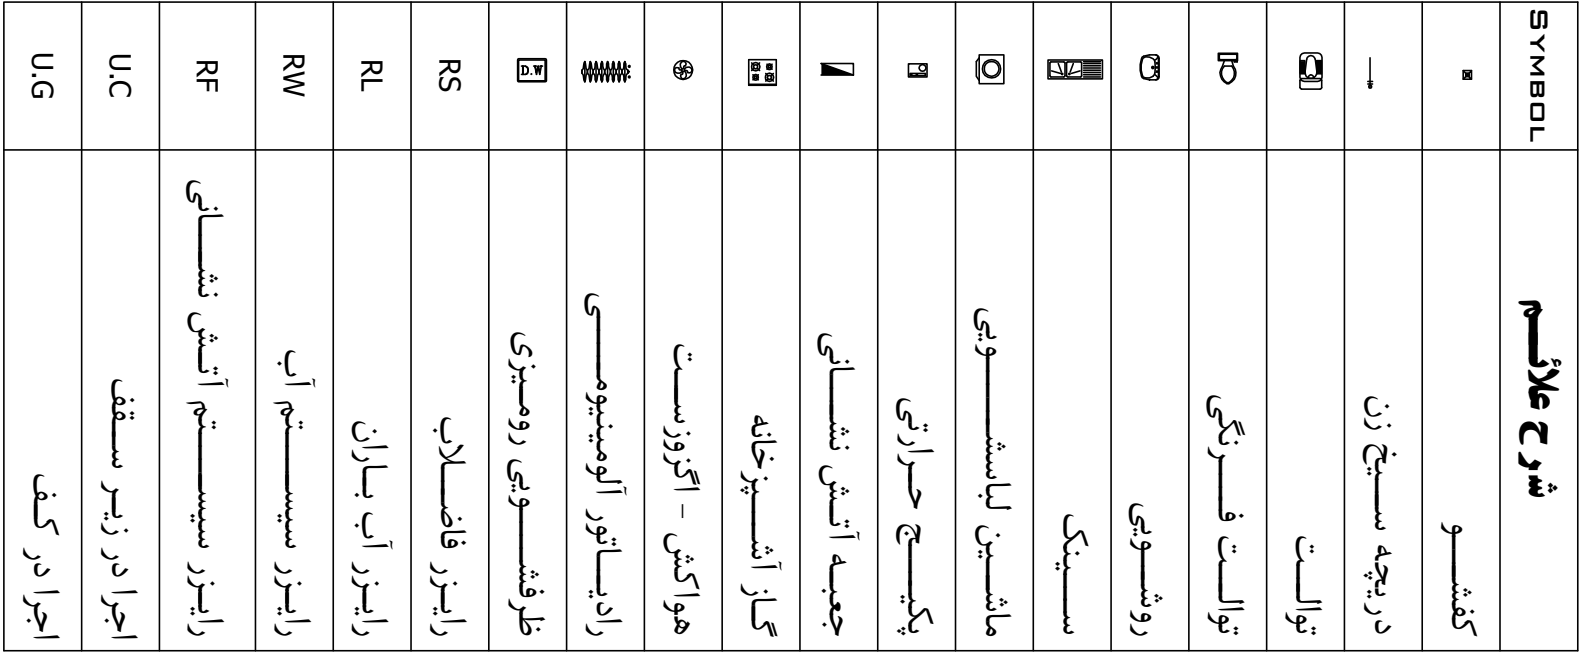 SYMBOL شرح علائم
کفشو
دریچه سیخ زن
توالت
توالت فرنگی
روشویی
سینک
ماشین لباسشویی
پکیج حرارتی
جعبه آتش نشانی
گاز آشپزخانه
هواکش - اگزوزست
رادیاتور آلومینیومی
D.W ظرفشویی رومیزی
RS رایزر فاضلاب
RL رایزر آب باران
RW رایزر سیستم آب
RF رایزر سیستم آتش نشانی
U.C اجرا در زیر سقف
U.G اجرا در کف